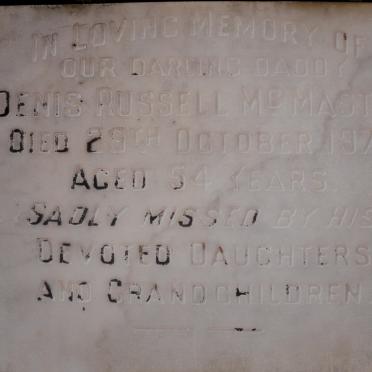 In Loving Memory of
our darling Daddy
Denis Russell
Died 29th October
Aged 54 years.
Sadly missed by his
devoted daughters
and grandchildren.